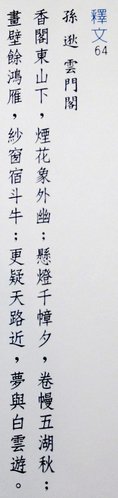 釋文
64
孫逖雲門閣
香閣東山下，煙花象外幽；懸燈千幛夕，卷幔五湖秋；
畫壁餘鴻雁，紗窗宿斗牛；更疑天路近，夢與白雲遊。